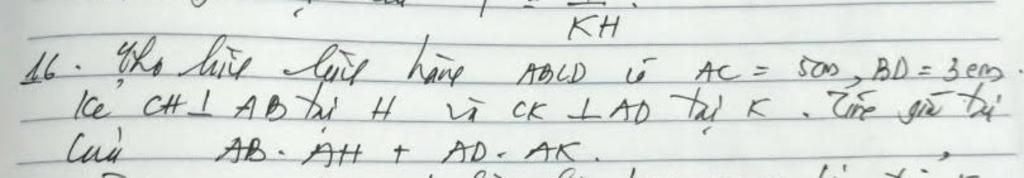 KH
16. Cho hình bình hành ABCD có AC = 5cm, BD = 3cm.
Kẻ CH ⊥ AB tại H và CK ⊥ AD tại K. Tính giá trị
của AB. AH + AD. AK.